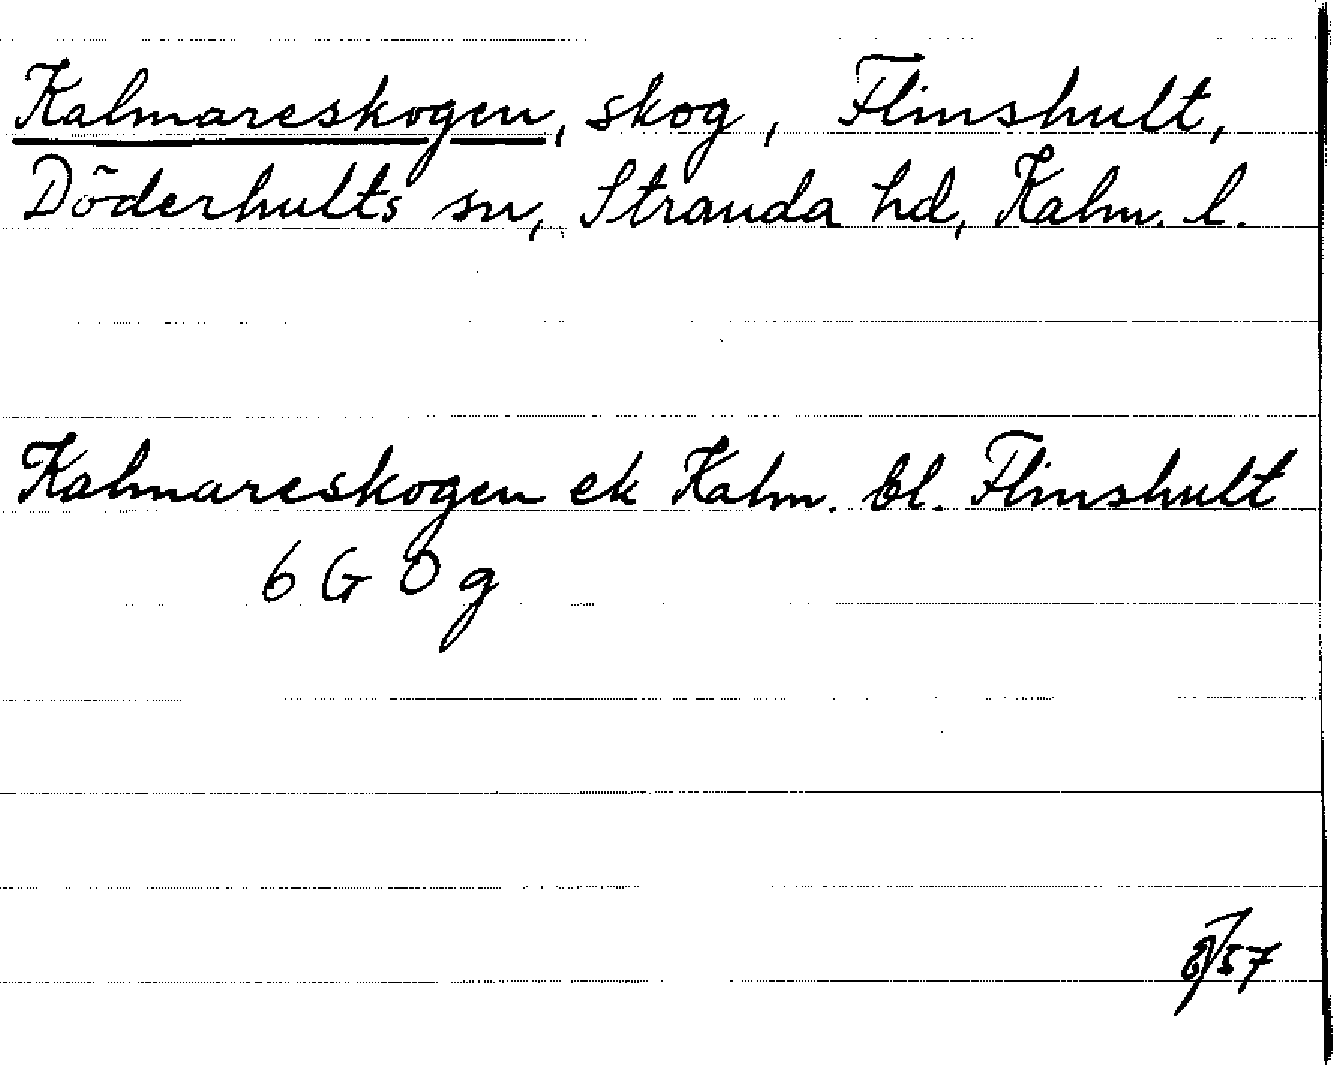 Kalmareskogen, skog, Flinshult,
Döderhults sn, Stranda hd, Kalm. l.
Kalmareskogen ek Kalm. bl. Flinshult
6 G O g
57